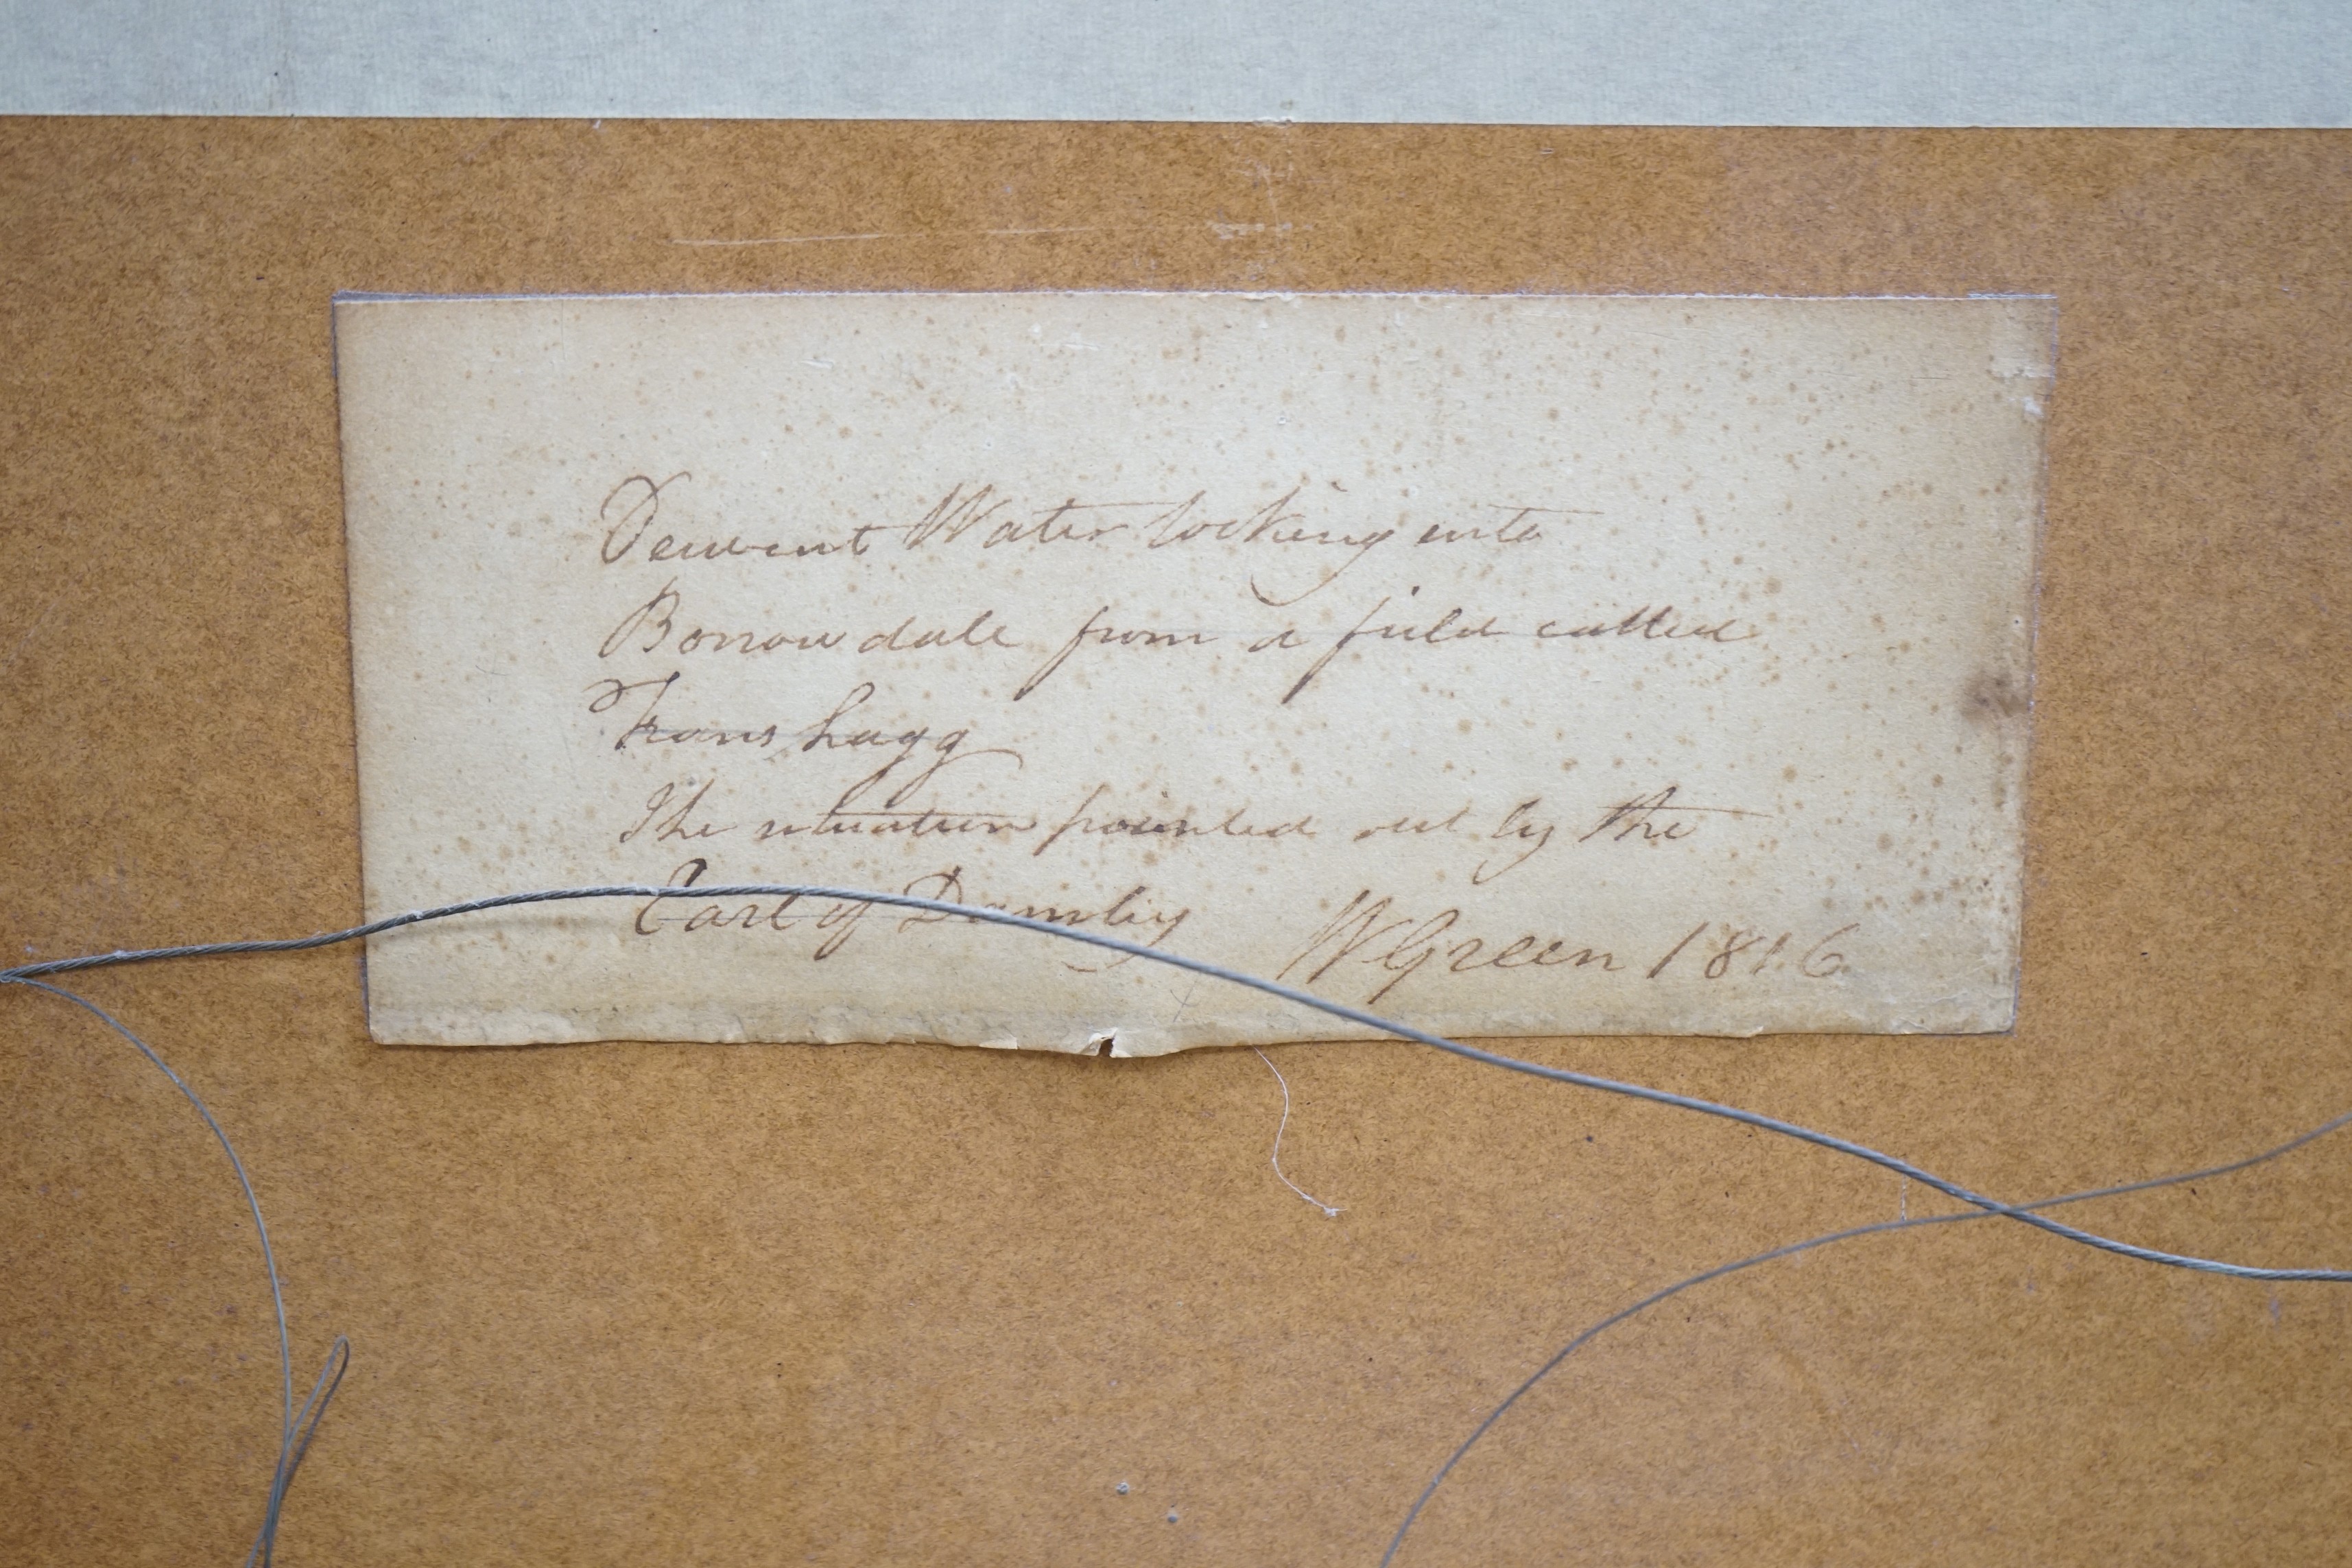 Derwent Water looking into
Borrowdale from a field called
Frans hagg
The situation pointed out by the
Earl of Darnley
WGreen 1816